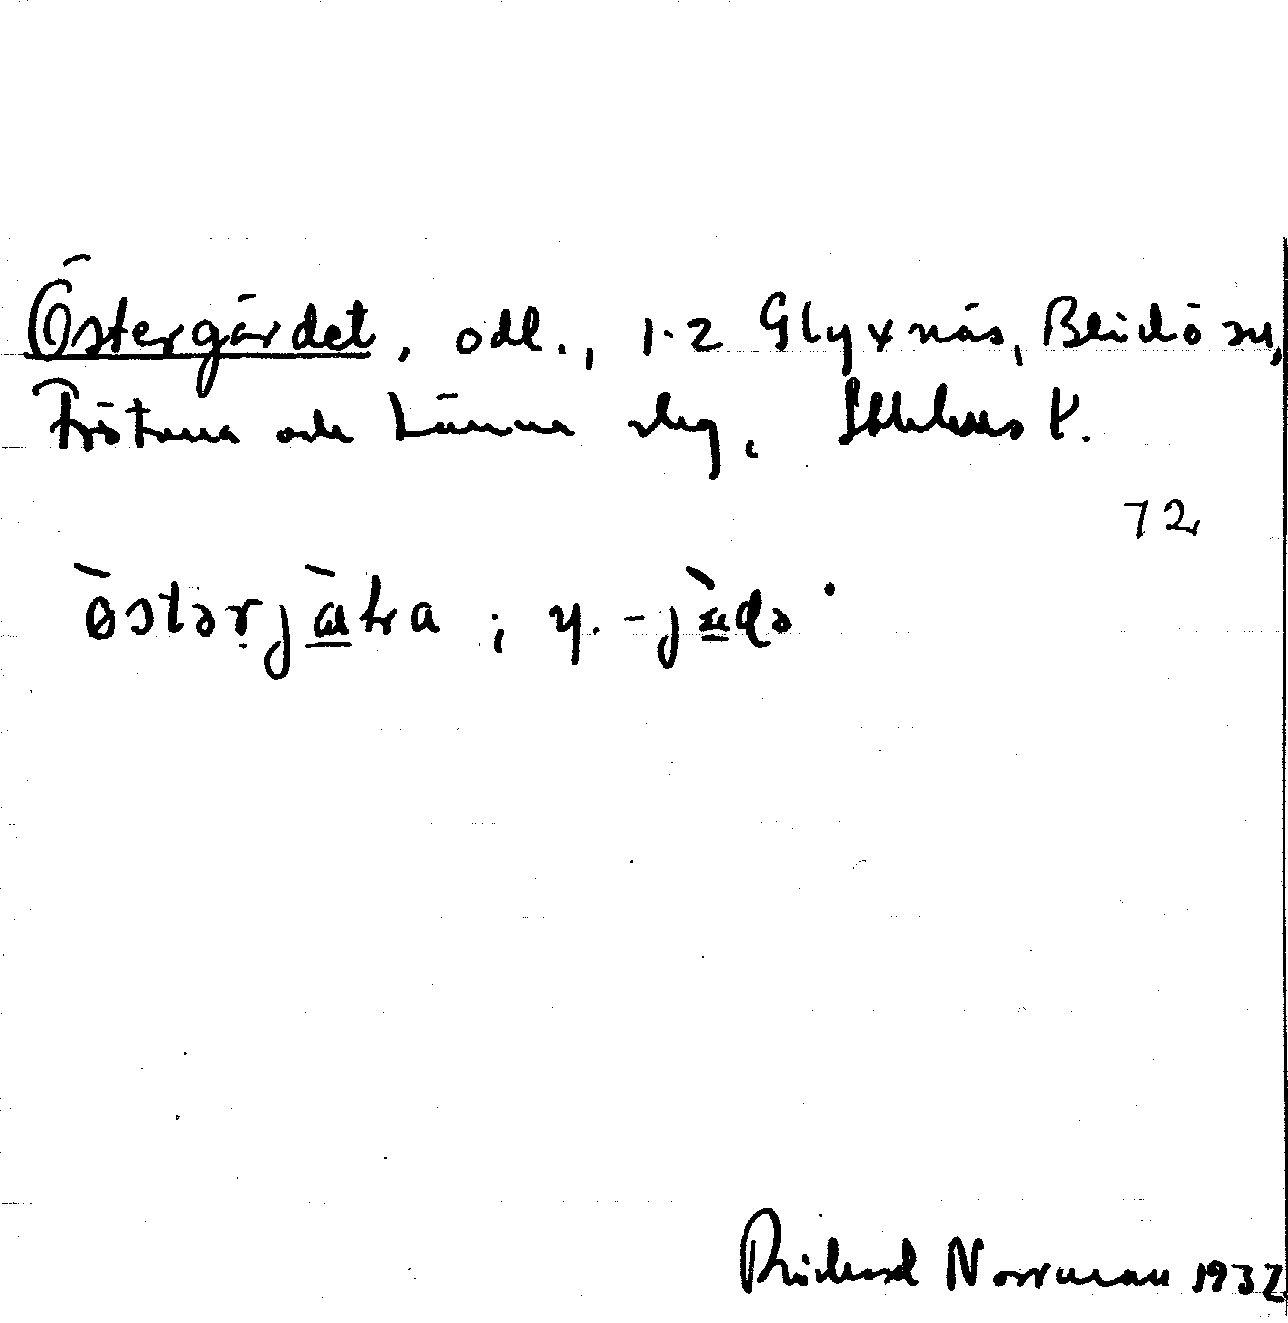 Östergärdet, odl., 1-2 Glyxnäs, Blidö sn,
Frötuna och Länna slg, Sthlms l.
72
östərjætra ; y. -jædə
Richard Norrman 1932